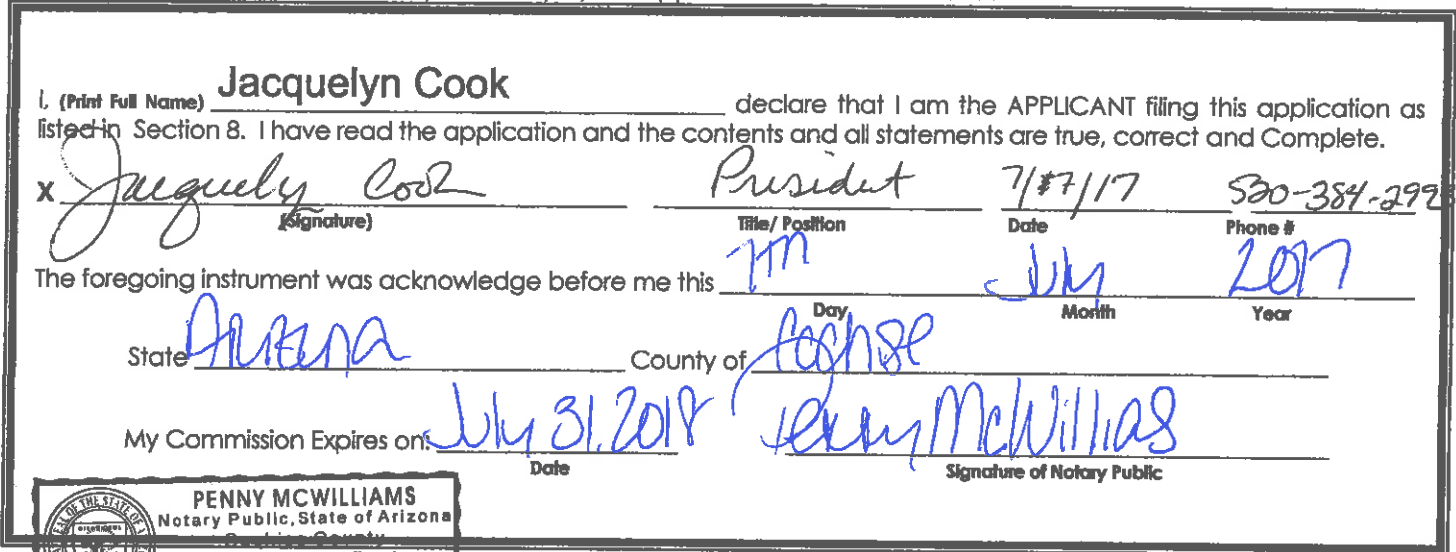 I, (Print Full Name) Jacquelyn Cook declare that I am the APPLICANT filing this application as
listed in Section 8. I have read the application and the contents and all statements are true, correct and Complete.
X Jacquely Cook President 7/7/17 530-384-299
(Signature) Title/ Position Date Phone #
The foregoing instrument was acknowledge before me this 7th July 2017
Day Month Year
State Arizona County of Cochise
My Commission Expires on: July 31, 2018 Penny McWilliams
Date Signature of Notary Public
PENNY MCWILLIAMS
Notary Public, State of Arizona